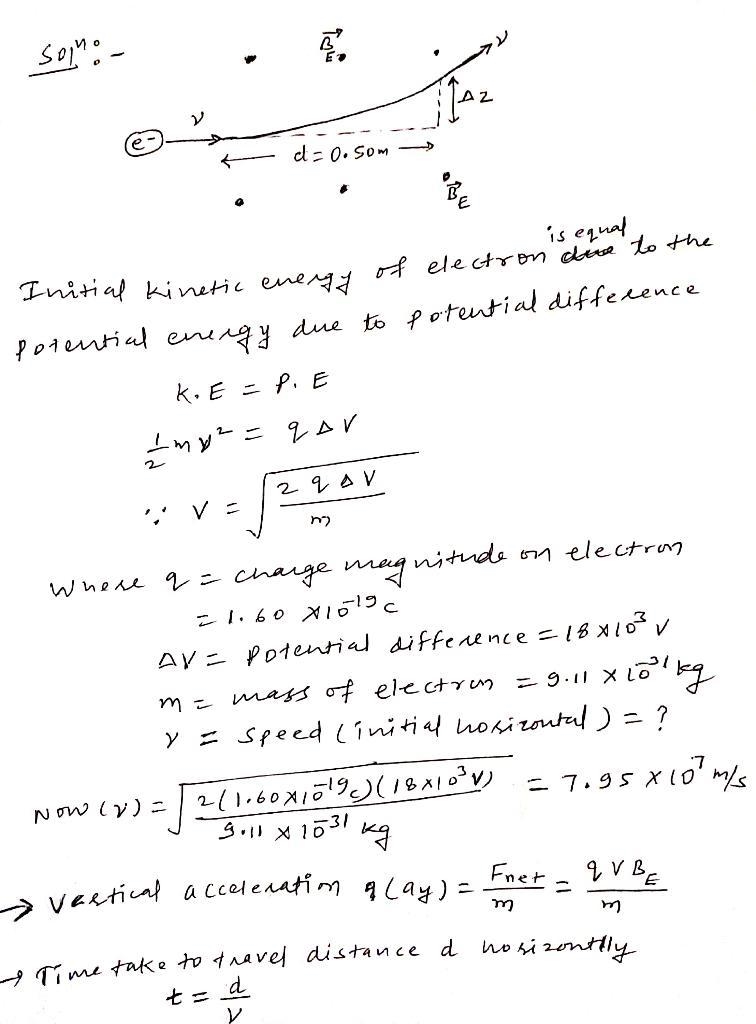 Solⁿ: -
B⃗E
v
Δz
v
e-
d = 0.50m
B⃗E
is equal
Initial kinetic energy of electron due to the
potential energy due to potential difference
K.E = P.E
1/2 mv² = qΔV
∵ V = √(2qΔV / m)
Where q = charge magnitude on electron
= 1.60 x10⁻¹⁹ C
ΔV = Potential difference = 18x10³ V
m = mass of electron = 9.11 x 10⁻³¹ kg
v = Speed (initial horizontal) = ?
Now (v) = √(2(1.60x10⁻¹⁹C)(18x10³V) / 9.11 x 10⁻³¹ kg) = 7.95 x 10⁷ m/s
→ Vertical acceleration (ay) = Fnet / m = qVBE / m
→ Time take to travel distance d horizontlly
t = d / v